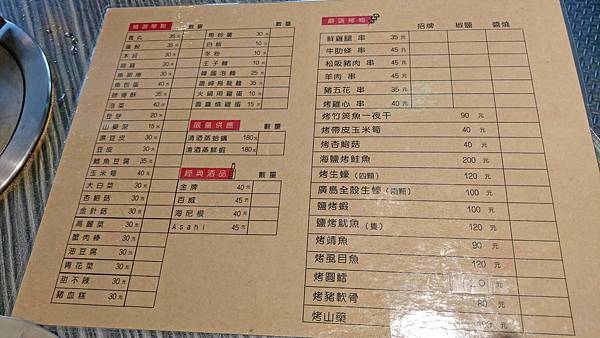 精選單點 數量
貢丸 35元
蛋餃 35元
木耳 30元
魚餃 30元
魚包蛋 40元
泡菜 40元
豆芽 20元
山藥泥 15元
凍豆腐 30元
豆皮 30元
鱈魚豆腐 35元
玉米筍 40元
大白菜 30元
杏鮑菇 30元
金針菇 30元
高麗菜 30元
蟹肉棒 30元
油豆腐 30元
青花菜 30元
甜不辣 30元
豬血糕 30元
數量
馬鈴薯 30元
白飯 10元
冬粉 10元
王子麵 10元
韓國泡麵 25元
讚岐烏龍麵 35元
火鍋用雞蛋 10元
壽喜燒雞蛋 15元
限量供應 數量
清酒蒸蛤蠣 180元
清酒蒸鮮蝦 180元
經典酒品 數量
金牌 40元
百威 45元
海尼根 40元
Asahi 45元
嚴選烤物 招牌 椒鹽 醬燒
鮮雞腿 串 35元
牛肋條 串 45元
松阪豬肉 串 45元
羊肉 串 45元
豬五花 串 35元
烤雞心 串 40元
烤竹筴魚一夜干 90元
烤帶皮玉米筍 40元
烤杏鮑菇 40元
海鹽烤鮭魚 200元
烤生蠔（四顆） 120元
廣島全殼生蠔（兩顆） 100元
鹽烤蝦 100元
鹽烤魷魚（隻） 120元
烤鯖魚 90元
烤虱目魚 120元
烤圓鱈
烤豬軟骨 80元
烤山藥